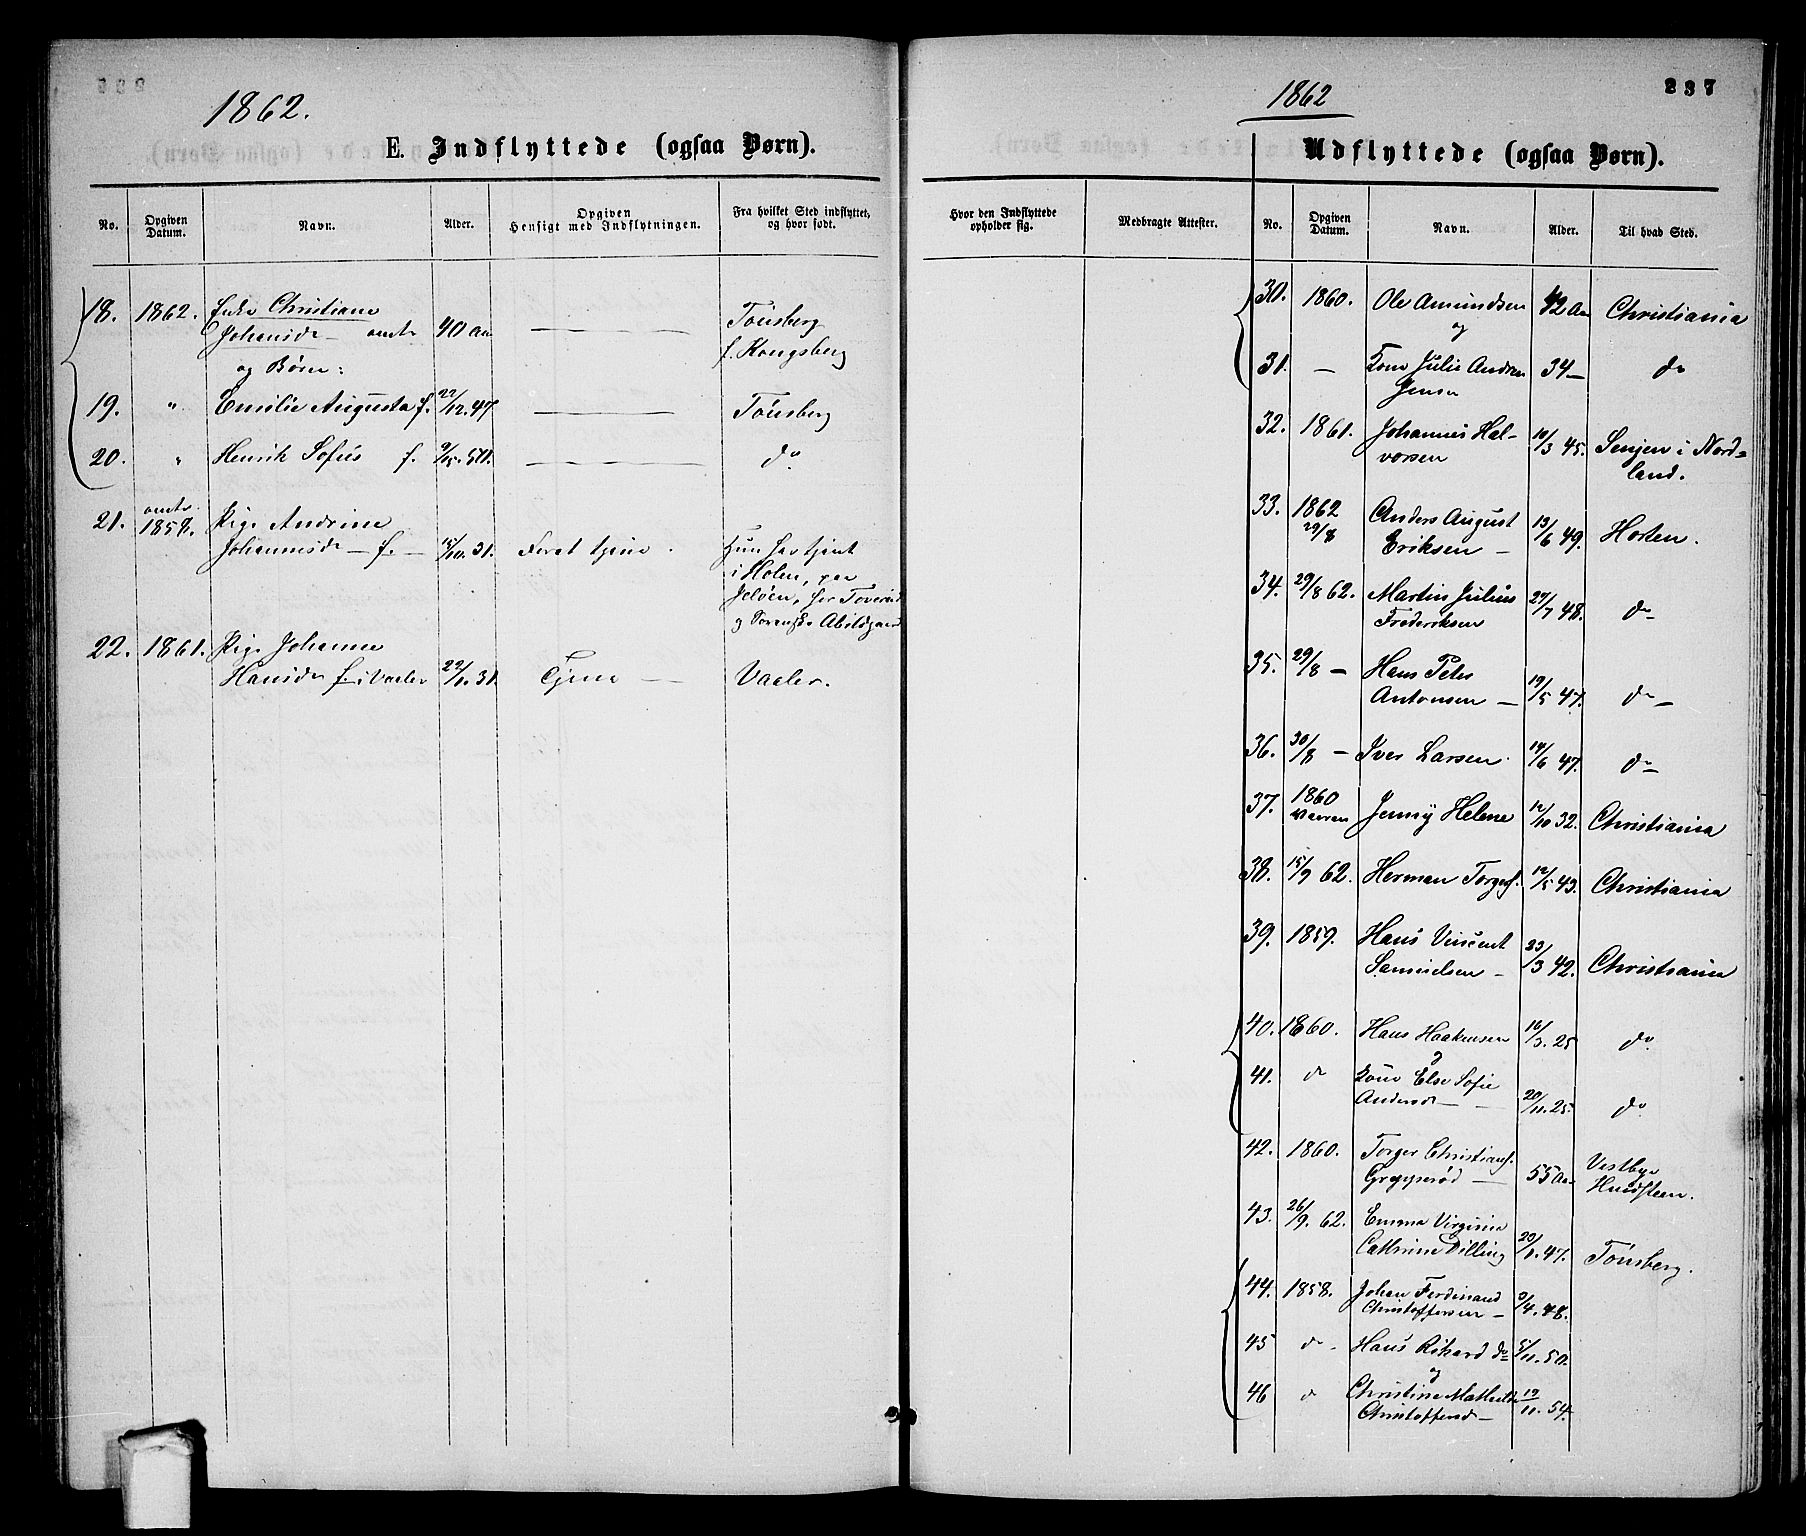 1862.
E. Indflyttede (ogsaa Børn).
No. Opgiven Datum. Navn. Alder. Opgiven Hensigt med Indflytningen. Fra hvilket Sted indflyttet, og hvor født.
18. 1862. Enke Christiane
Johansdr omtr 40 Aar Tönsberg
og Børn: f. Kongsberg
19. " Emilie Augusta f. 22/12.47. Tönsberg
20. " Henrik Sofus f. 9/5.50. do
omtr.
21. 1858. Pige Andrine
Johannesdr f. 15/10.31. For at tjene. Hun har tjent
i Holen, paa
Jeløen, hos
og Abildgaard
22. 1861. Pige Johanne
Hansdr f. i Vaaler 22/1.31. Tjene Vaaler.
1862
237
Udflyttede (ogsaa Børn).
Hvor den Indflyttede opholder sig. Medbragte Attester. No. Opgiven Datum. Navn. Alder. Til hvad Sted.
30. 1860. Ole Amundsen 42 Aar Christiania
og
31. — Kone Julie Andrea 34 — do
Jensen
32. 1861. Johannes Hal- 10/3 45. Senjen i Nord=
vorsen land.
33. 1862 Anders August
29/8 Eriksen — 13/6 49. Horten.
34. 29/8 62. Martin Julius 27/7 48. do —
Frederiksen
35. 29/8 — Hans Peter
Antonsen — 19/5 47. do —
36. 30/8 — Iver Larsen. 14/6 47. do —
37. 1860 Jenny Helene 12/10 32. Christiania
38. 15/9 62. Herman Torgers. 12/5 43. Christiania
39. 1859. Hans Vincent 23/3 42. Christiania
Samuelsen —
40. 1860. Hans Haakensen 16/3.25 do
og
41. do Kone Else Sofie
Andersdr — 20/11.25. do
42. 1860. Torger Christians. Vestby
Grepperød — 55 Aar Hvidsteen.
43. 26/9.62. Emma Virginia
Cathrine Dilling 20/1.47. Tönsberg.
44. 1858. Johan Ferdinand 3/4.48.
Christoffersen —
45 do. Hans Rikard do 5/11.50.
og
46 do Christine Mathilde 19/11.54.
Christoffersdr —